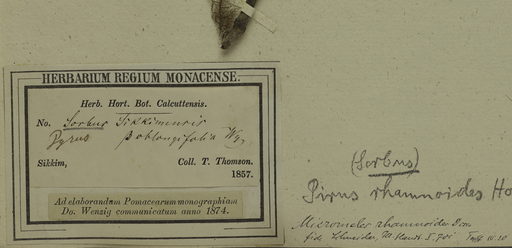 HERBARIUM REGIUM MONACENSE.
Herb. Hort. Bot. Calcuttensis.
No. Sorbus Sikkimensis
Pyrus β oblongifolia Wz.
Sikkim, Coll. T. Thomson.
1857.
Ad elaborandam Pomacearum monographiam
Do. Wenzig communicatum anno 1874.
(Sorbus)
Pirus rhamnoides Ho
Micromeles rhamnoides Dcn.
fide Schneider, Ill. Handb. I. 701